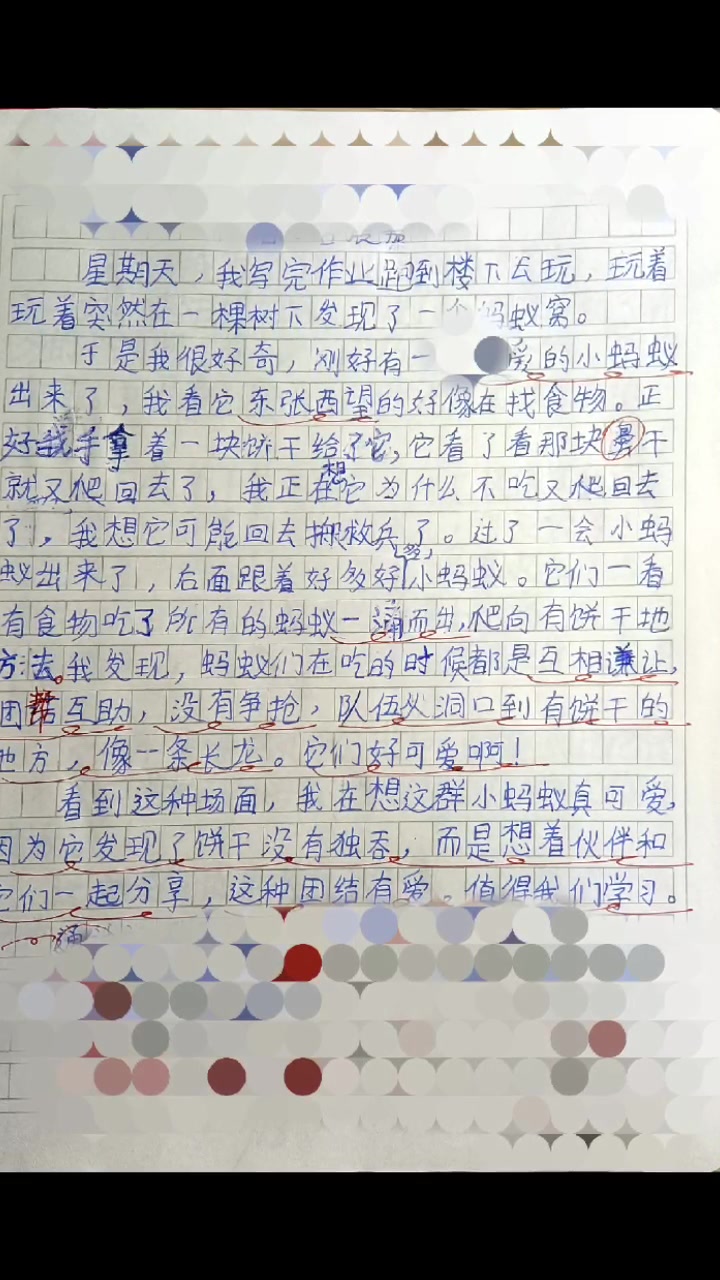 星期天，我写完作业跑到楼下去玩，玩着
玩着突然在一棵树下发现了一个蚂蚁窝。
于是我很好奇，刚好有一爱的小蚂蚁
出来了，我看它东张西望的好像在找食物。正
好我手拿着一块饼干给了它，它看了看那块干
想
就又爬回去了，我正在它为什么不吃又爬回去
了，我想它可能回去搬救兵了。过了一会小蚂
蚁出来了，后面跟着好多好多小蚂蚁。它们一看
有食物吃了所有的蚂蚁一涌而出，爬向有饼干地
方去。我发现，蚂蚁们在吃的时候都是互相谦让，
团帮互助，没有争抢，队伍从洞口到有饼干的
地方，像一条长龙。它们好可爱啊！
看到这种场面，我在想这群小蚂蚁真可爱，
因为它发现了饼干没有独吞，而是想着伙伴和
它们一起分享，这种团结有爱。值得我们学习。
涌